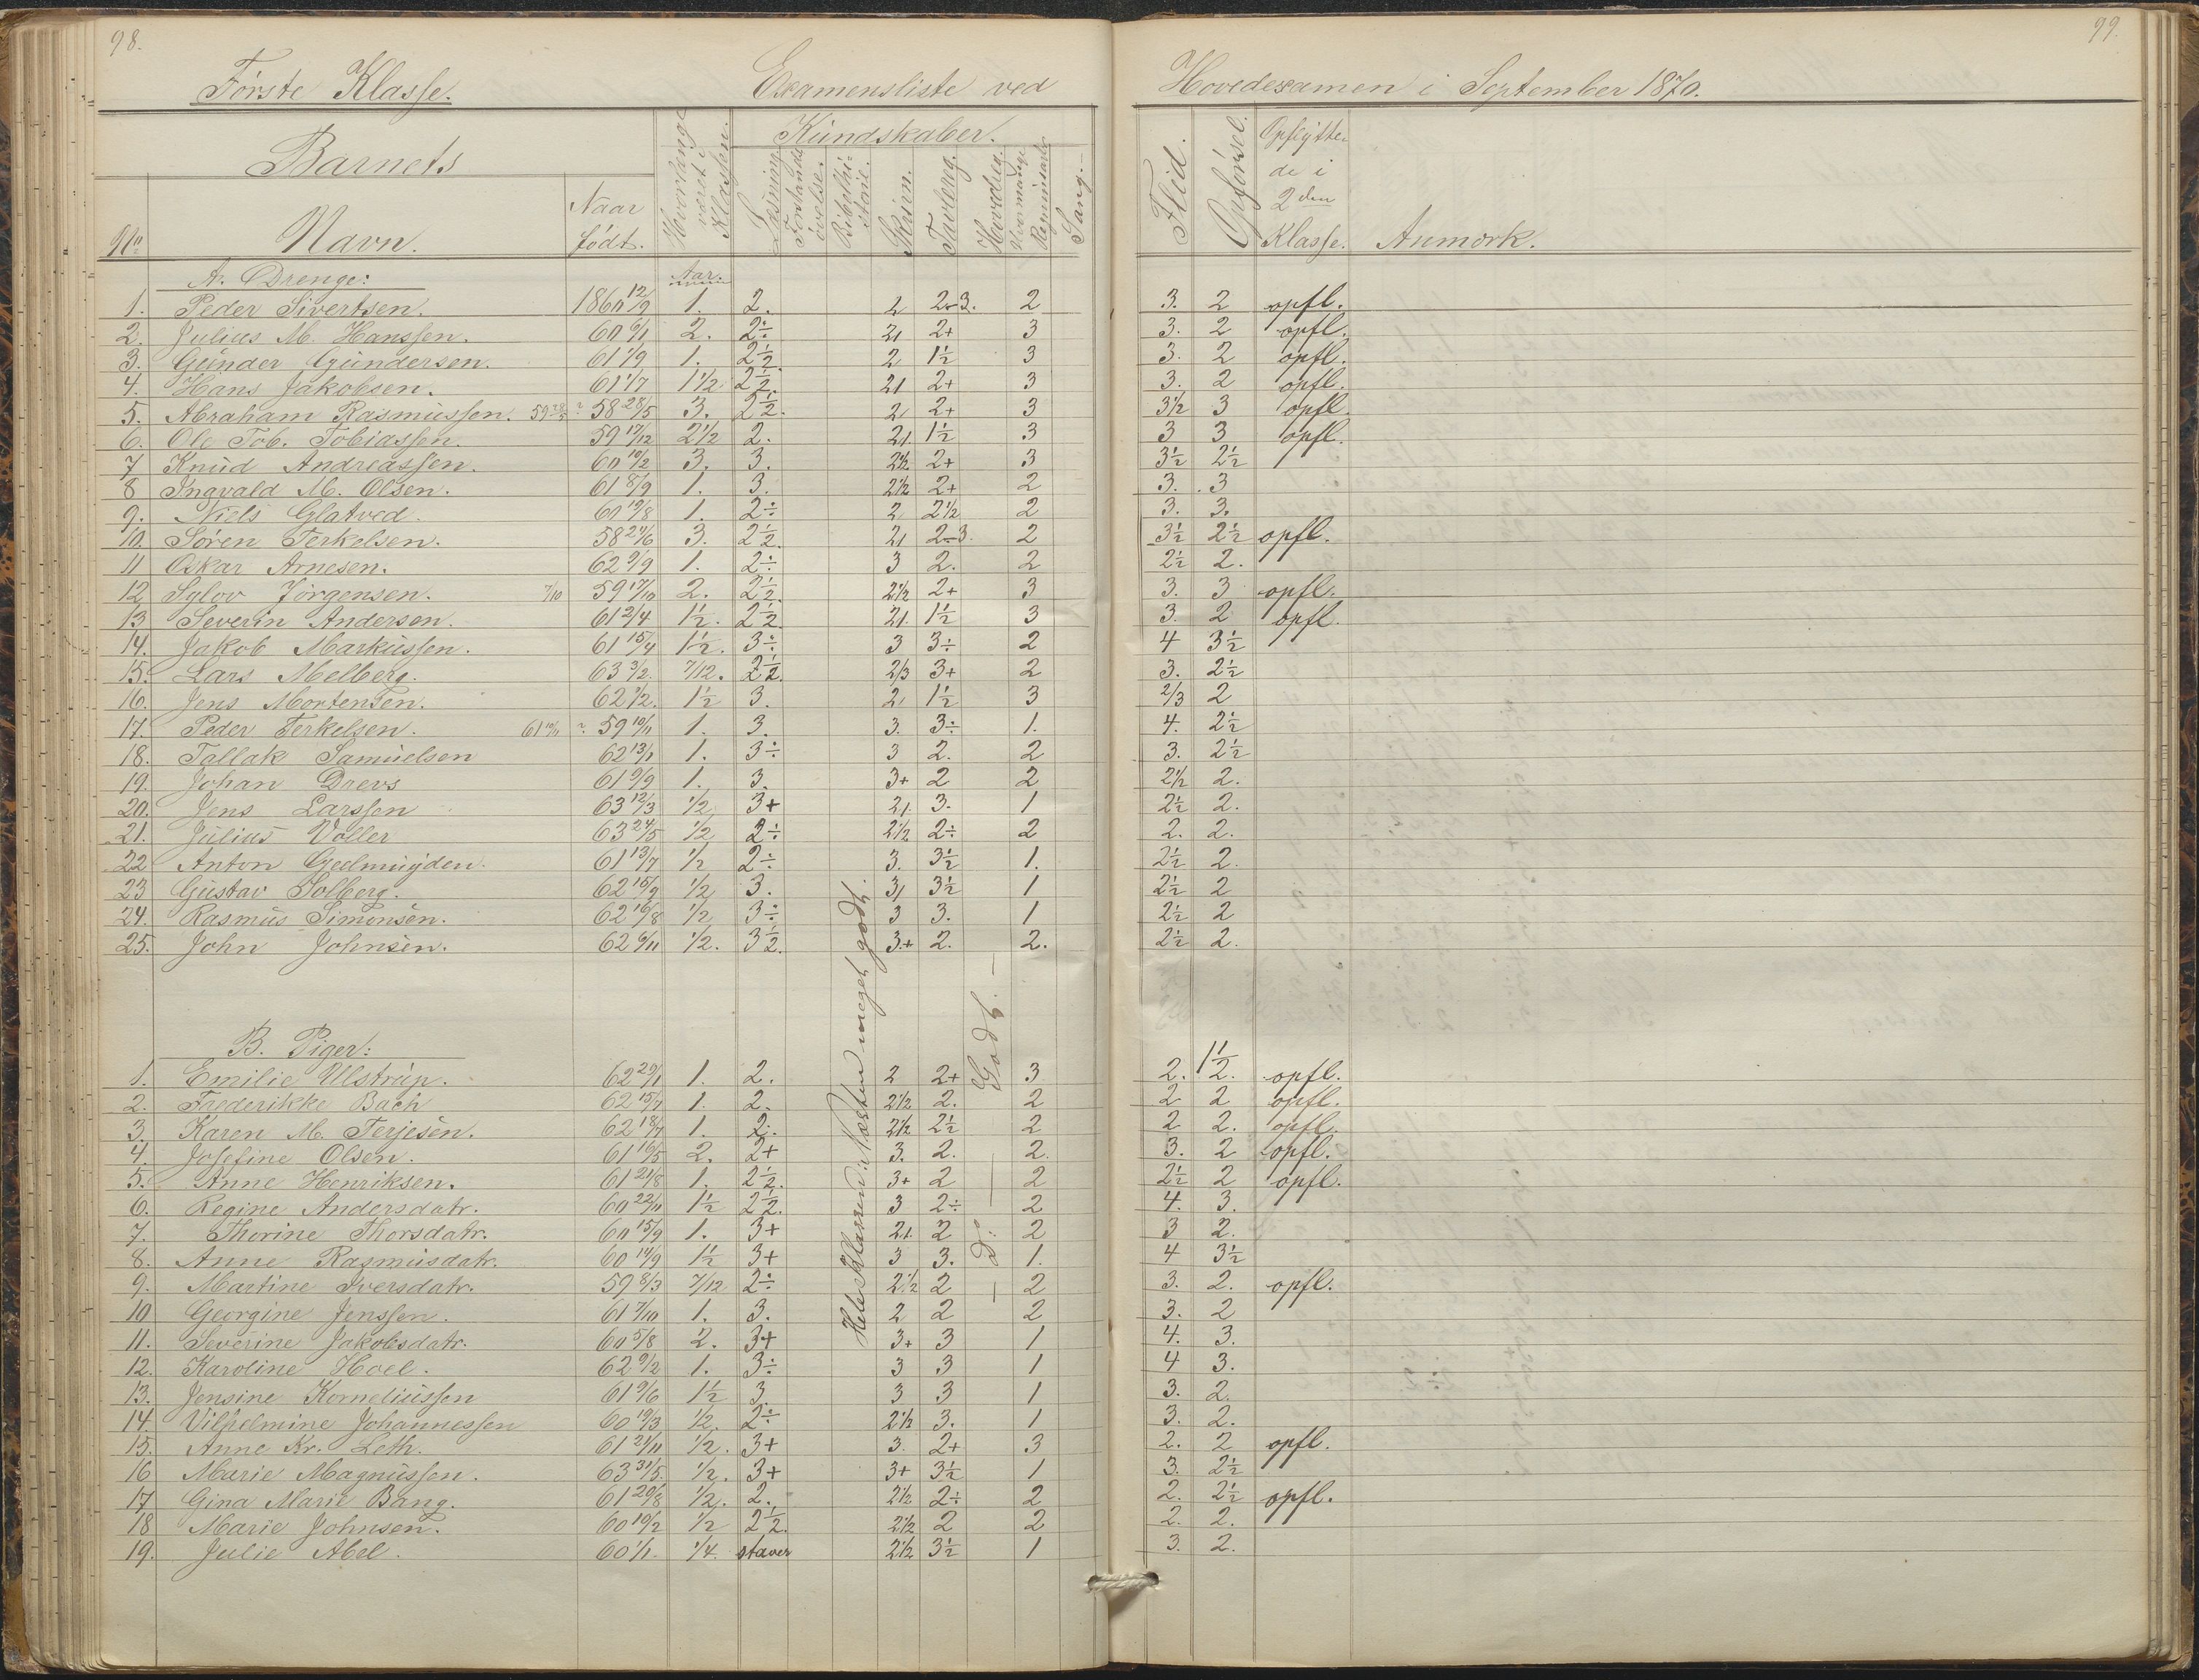 98.
99.
Første Klasse.
Examensliste ved
Hovedexamen i September 1870.
Barnets
Hvorlænge været i Klassen.
Kundskaber.
Flid.
Opførsel.
Opflyttede i 2den Klasse.
Anmærk.
No
Navn.
Naar født.
Læsning
Forstandsøvelse.
Bibelhistorie.
Skrivn.
Tavlereg.
Hovedreg.
Hvormange Regningsarter
Sang.
A. Drenge:
Aar.
1. Peder Sivertsen. 1860 12/9 1. 2. 2 2-3. 2 3. 2 opfl.
2. Julius M. Hanssen. 60 6/11 2. 2÷ 21 2+ 3 3. 2 opfl.
3. Gunder Gundersen. 61 1/9 1. 2½ 2 1½ 3 3. 2 opfl.
4. Hans Jakobsen. 61 1/7 1½ 2½ 21 2+ 3 3. 2 opfl.
5. Abraham Rasmussen. 59 28/5 ? 58 28/5 3. 2½. 2 2+ 3 3½ 3 opfl.
6. Ole Tob. Tobiassen. 59 17/12 2½ 2. 21. 1½ 3 3 3 opfl.
7 Knud Andreassen. 60 10/2 3. 3. 2½ 2+ 3 3½ 2½
8 Ingvald M. Olsen. 61 8/9 1. 3. 2½ 2+ 2 3. 3
9. Niels Glatved. 60 19/8 1. 2÷ 2 2½ 2 3. 3.
10. Søren Terkelsen. 58 24/6 3. 2½. 21 2-3. 2 3½ 2½ opfl.
11 Oskar Arnesen. 62 9/9 1. 2÷ 3 2. 2 2½ 2.
12 Sylov Jørgensen. 7/10 59 17/10 2. 2½. 2½ 2+ 3 3. 3 opfl.
13 Severin Andersen. 61 2/4 1½. 2½ 21. 1½ 3 3. 2 opfl.
14. Jakob Markussen. 61 15/4 1½. 3÷ 3 3÷ 2 4 3½
15. Lars Melberg. 63 3/2. 7/12. 2½. 2/3 3+ 2 3. 2½
16. Jens Mortensen. 62 1/2. 1½ 3. 21 1½ 3 2/3 2
17. Peder Terkelsen. 61 10/11 ? 59 10/11 1. 3. 3. 3÷ 1. 4. 2½
18. Tallak Samuelsen 62 13/1 1. 3÷ 3 2. 2 3. 2½
19. Johan Drevs 61 9/9 1. 3. 3+ 2 2 2½ 2.
20. Jens Larssen 63 12/3 ½ 3+ 21. 3. 1 2½ 2.
21. Julius Voller 63 24/5 ½ 2÷ 2½ 2÷ 2 2. 2.
22 Anton Geelmuyden. 61 13/7 ½ 2÷ 3. 3½ 1. 2½ 2.
23 Gustav Solberg. 62 15/9 ½ 3. 31 3½ 1 2½ 2
24. Rasmus Simonsen. 62 16/8 ½ 3÷ 3 3. 1 2½ 2
25. John Johnsen. 62 6/11 ½. 3½. 3+ 2. 2. 2½ 2.
Hele Klassen: Næsten meget godt.
— do — Godt. —
B. Piger:
1. Emilie Ulstrup. 62 29/1 1. 2. 2 2+ 3 2. 1½ 2. opfl.
2. Frederikke Bach 62 15/7 1. 2. 2½ 2. 2 2 2 opfl.
3. Karen M. Terjesen. 62 18/7 1. 2. 2½ 2½ 2 2 2. opfl.
4. Josefine Olsen. 61 16/5 2. 2+ 3. 2. 2. 3. 2 opfl.
5. Anne Henriksen. 61 21/8 1. 2½. 3+ 2 2 2½ 2 opfl.
6. Regine Andersdatr. 60 22/11 1½ 2½. 3 2÷ 2 4. 3.
7. Thorine Thorsdatr. 60 15/9 1. 3+ 21. 2 2 3 2.
8. Anne Rasmusdatr. 60 14/9 1½ 3+ 3 3. 1. 4 3½
9. Martine Iversdatr. 59 8/3 7/12 2÷ 2½ 2 2 3. 2. opfl.
10 Georgine Jenssen. 61 7/10 1. 3. 2 2 2 3. 2
11. Severine Jakobsdatr. 60 5/8 2. 3+ 3+ 3 1 4. 3.
12. Karoline Hoel. 62 9/2 1. 3÷ 3 3 1 4 3.
13. Jensine Korneliussen 61 9/6 1½ 3 3 3 1 3. 2.
14. Vilhelmine Johannessen 60 19/3 ½. 2÷ 2½ 3. 1 3. 2.
15. Anne Kr. Leth. 61 21/11 ½. 3+ 3. 2+ 3 2. 2 opfl.
16 Marie Magnussen. 63 31/5. ½. 3+ 3+ 3½ 1 3. 2½
17 Gina Marie Bang. 61 20/8 ½. 2. 2½ 2÷ 2 2. 2½ opfl.
18 Marie Johnsen. 60 10/2 ½ 2½. 2½ 2 2 2. 2.
19. Julie Abel. 60 1/1. ¼. staver 2½ 3½ 1 3. 2.